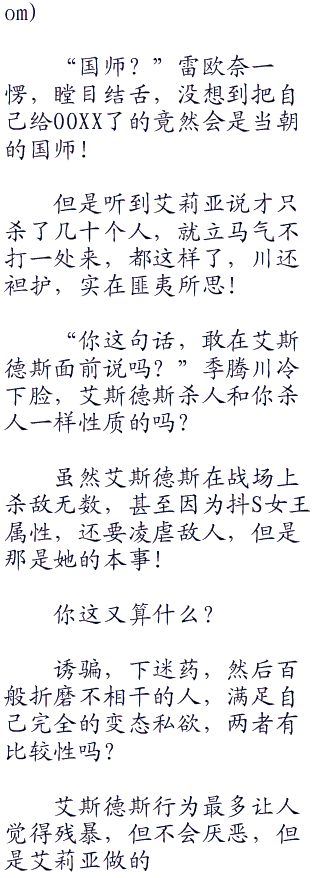 om)
“国师？”雷欧奈一
愣，瞠目结舌，没想到把自
己给OOXX了的竟然会是当朝
的国师！
但是听到艾莉亚说才只
杀了几十个人，就立马气不
打一处来，都这样了，川还
袒护，实在匪夷所思！
“你这句话，敢在艾斯
德斯面前说吗？”季腾川冷
下脸，艾斯德斯杀人和你杀
人一样性质的吗？
虽然艾斯德斯在战场上
杀敌无数，甚至因为抖S女王
属性，还要凌虐敌人，但是
那是她的本事！
你这又算什么？
诱骗，下迷药，然后百
般折磨不相干的人，满足自
己完全的变态私欲，两者有
比较性吗？
艾斯德斯行为最多让人
觉得残暴，但不会厌恶，但
是艾莉亚做的